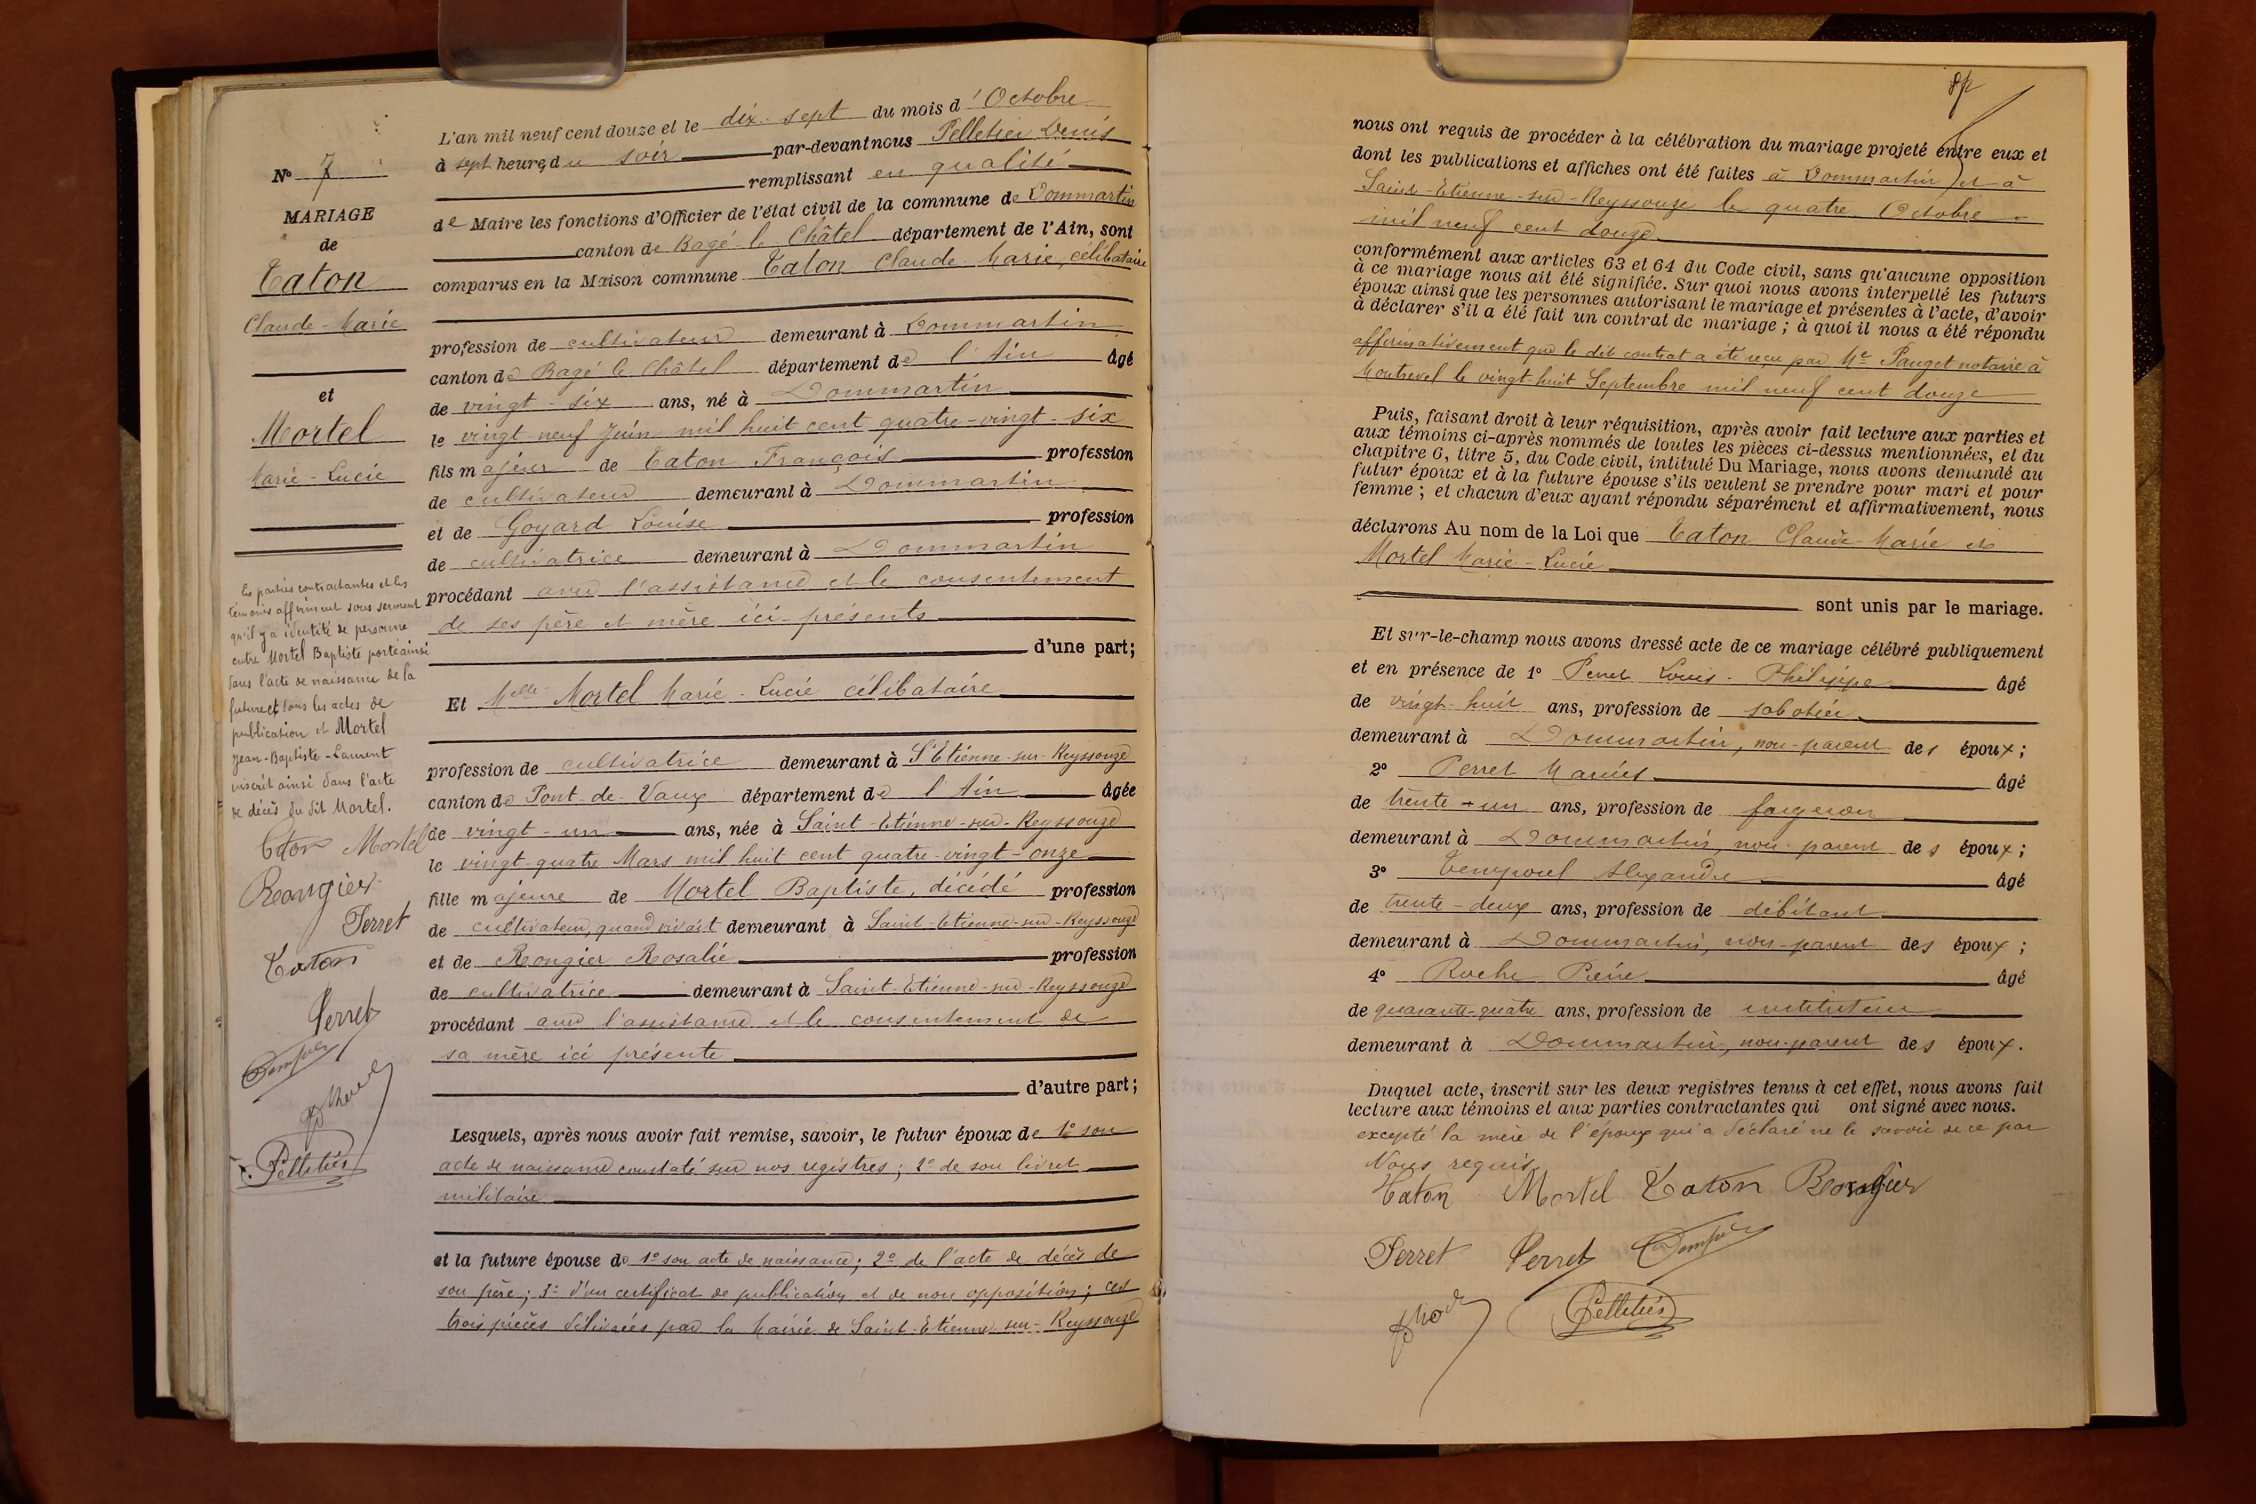 N° 7
MARIAGE
de
Caton
Claude-Marie
et
Mortel
Marie-Lucie
les parties contractantes et les
témoins affirment sous serment
qu'il y a identité de personne
entre Mortel Baptiste porté ainsi
dans l'acte de naissance de la
future et tous les actes de
publication et Mortel
Jean-Baptiste-Laurent
inscrit ainsi dans l'acte
de décès du dit Mortel.
Caton Mortel
Rougier
Perret
Caton
Perret
Pelletier
L'an mil neuf cent douze et le dix-sept du mois d'Octobre
à sept heures du soir par-devant nous Pelletier Denis
remplissant en qualité
de Maire les fonctions d'Officier de l'état civil de la commune de Dommartin
canton de Bagé-le-Châtel département de l'Ain, sont
comparus en la Maison commune Caton Claude Marie, célibataire
profession de cultivateur demeurant à Dommartin
canton de Bagé-le-Châtel département de l'Ain âgé
de vingt-six ans, né à Dommartin
le vingt-neuf Juin mil huit cent quatre-vingt-six
fils majeur de Caton François profession
de cultivateur demeurant à Dommartin
et de Goyard Louise profession
de cultivatrice demeurant à Dommartin
procédant avec l'assistance et le consentement
de ses père et mère ici présents
d'une part;
Et Melle Mortel Marie-Lucie célibataire
profession de cultivatrice demeurant à St Etienne-sur-Reyssouze
canton de Pont-de-Vaux département de l'Ain âgée
de vingt-un ans, née à Saint-Etienne-sur-Reyssouze
le vingt-quatre Mars mil huit cent quatre-vingt-onze
fille majeure de Mortel Baptiste, décédé profession
de cultivateur, quand vivait demeurant à Saint-Etienne-sur-Reyssouze
et de Rougier Rosalie profession
de cultivatrice demeurant à Saint-Etienne-sur-Reyssouze
procédant avec l'assistance et le consentement de
sa mère ici présente
d'autre part;
Lesquels, après nous avoir fait remise, savoir, le futur époux de 1° son
acte de naissance constaté sur nos registres; 2° de son livret
militaire
et la future épouse de 1° son acte de naissance; 2° de l'acte de décès de
son père; 3° d'un certificat de publication et de non opposition; ces
trois pièces délivrées par la Mairie de Saint-Etienne-sur-Reyssouze
nous ont requis de procéder à la célébration du mariage projeté entre eux et
dont les publications et affiches ont été faites à Dommartin et à
Saint-Etienne-sur-Reyssouze le quatre Octobre
mil neuf cent douze
conformément aux articles 63 et 64 du Code civil, sans qu'aucune opposition
à ce mariage nous ait été signifiée. Sur quoi nous avons interpellé les futurs
époux ainsi que les personnes autorisant le mariage et présentes à l'acte, d'avoir
à déclarer s'il a été fait un contrat de mariage; à quoi il nous a été répondu
affirmativement que le dit contrat a été reçu par Me Pauget notaire à
Montrevel le vingt-huit Septembre mil neuf cent douze
Puis, faisant droit à leur réquisition, après avoir fait lecture aux parties et
aux témoins ci-après nommés de toutes les pièces ci-dessus mentionnées, et du
chapitre 6, titre 5, du Code civil, intitulé Du Mariage, nous avons demandé au
futur époux et à la future épouse s'ils veulent se prendre pour mari et pour
femme; et chacun d'eux ayant répondu séparément et affirmativement, nous
déclarons Au nom de la Loi que Caton Claude-Marie et
Mortel Marie-Lucie
sont unis par le mariage.
Et sur-le-champ nous avons dressé acte de ce mariage célébré publiquement
et en présence de 1° Perret Louis-Philippe âgé
de vingt-huit ans, profession de sabotier
demeurant à Dommartin, non-parent des époux;
2° Perret Marius âgé
de trente-un ans, profession de forgeron
demeurant à Dommartin, non-parent des époux;
3° Temporel Alexandre âgé
de trente-deux ans, profession de débitant
demeurant à Dommartin, non-parent des époux;
4° Roche Pierre âgé
de quarante-quatre ans, profession de instituteur
demeurant à Dommartin, non-parent des époux.
Duquel acte, inscrit sur les deux registres tenus à cet effet, nous avons fait
lecture aux témoins et aux parties contractantes qui ont signé avec nous.
excepté la mère de l'époux qui a déclaré ne le savoir de ce par
Nous requis
Caton Mortel Caton Rougier
Perret Perret
Pelletier